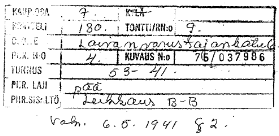 KAUP.OSA 7 KYLÄ
KORTTELI 180. TONTTI/RN:O 9.
OSOITE Laivanvarustajankatu 6
PIIR. N:O 4. KUVAUS N:O 76/037986
TUNNUS 53-41.
PIIR. LAJI pää
PIIR. SIS:LTÖ Leikkaus B-B
Vahv. 6.5.1941 §2.